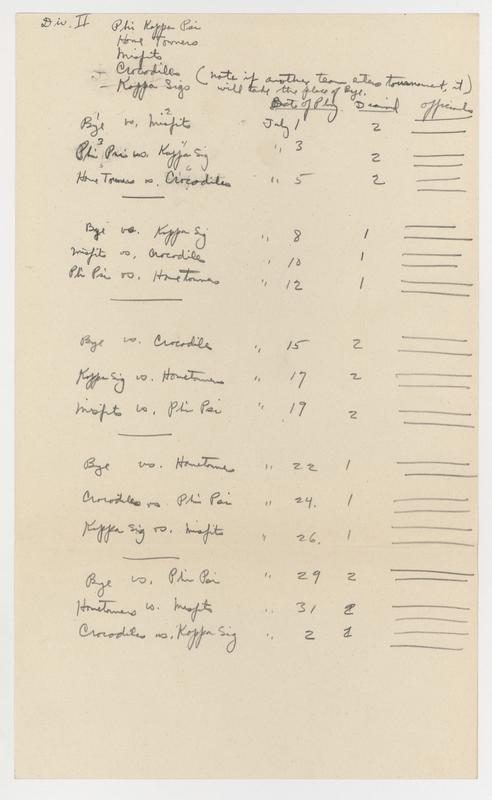 Div. II
Phi Kappa Psi
Home Towners
Misfits
Crocodiles (note if another team enters tournament, it)
Kappa Sigs will take the place of Bye.
Date of Play Diamond officials
1 2
Bye vs. Misfits July 1 2
3 4
Phi Psi vs. Kappa Sig " 3 2
5 6
Home Towners vs. Crocodiles " 5 2
Bye vs. Kappa Sig " 8 1
Misfits vs. Crocodiles " 10 1
Phi Psi vs. Hometowners " 12 1
Bye vs. Crocodiles " 15 2
Kappa Sig vs. Hometowners " 17 2
Misfits vs. Phi Psi " 19 2
Bye vs. Hometowners " 22 1
Crocodiles vs. Phi Psi " 24. 1
Kappa Sig vs. Misfits " 26. 1
Bye vs. Phi Psi " 29 2
Hometowners vs. Misfits " 31 2
Crocodiles vs. Kappa Sig " 2 2